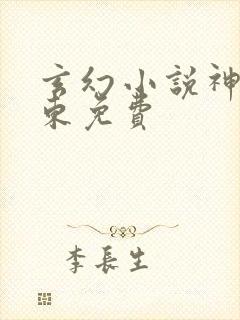 玄幻小説神
東免費
李長生